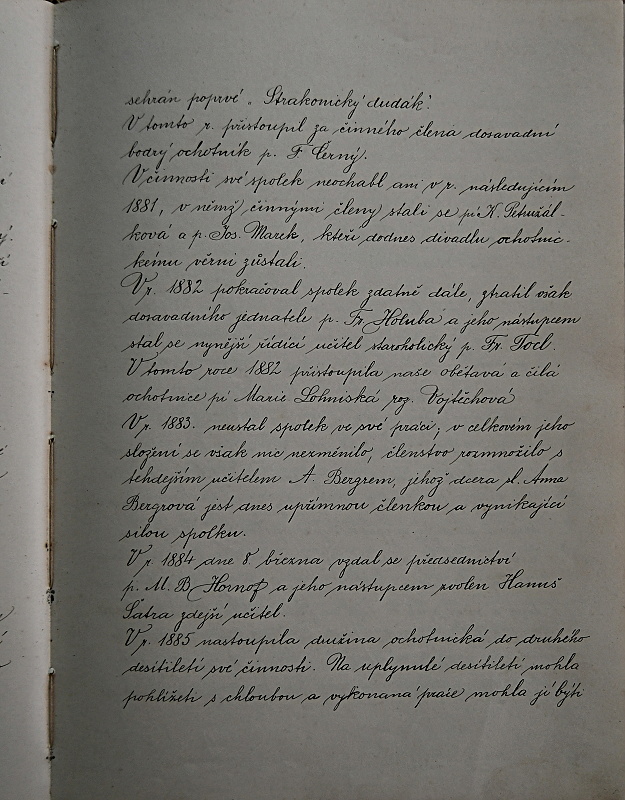 sehrán poprvé „Strakonický dudák“.
V tomto r. přistoupil za činného člena dosavadní
bodrý ochotník p. F. Černý.
V činnosti své spolek neochabl ani v r. následujícím
1881, v němž činnými členy stali se pí K. Petružál-
ková a p. Jos. Marek, kteří dodnes divadlu ochotnic-
kému věrni zůstali.
V r. 1882 pokračoval spolek zdatně dále, ztratil však
dosavadního jednatele p. Fr. Holuba a jeho nástupcem
stal se nynější řídící učitel staroholický p. Fr. Tocl.
V tomto roce 1882 přistoupila naše obětavá a čilá
ochotnice pí Marie Lohniská roz. Vojtěchová
V r. 1883. neustal spolek ve své práci; v celkovém jeho
složení se však nic nezměnilo, členstvo rozmnožilo s
tehdejším učitelem A. Bergrem, jehož dcera sl. Anna
Bergrová jest dnes upřímnou členkou a vynikající
silou spolku.
V r. 1884 dne 8. března vzdal se předsednictví
p. M. B. Hornof a jeho nástupcem zvolen Hanuš
Šatra zdejší učitel.
V r. 1885 nastoupila družina ochotnická do druhého
desítiletí své činnosti. Na uplynulé desítiletí mohla
pohlížeti s chloubou a vykonaná práce mohla jí býti